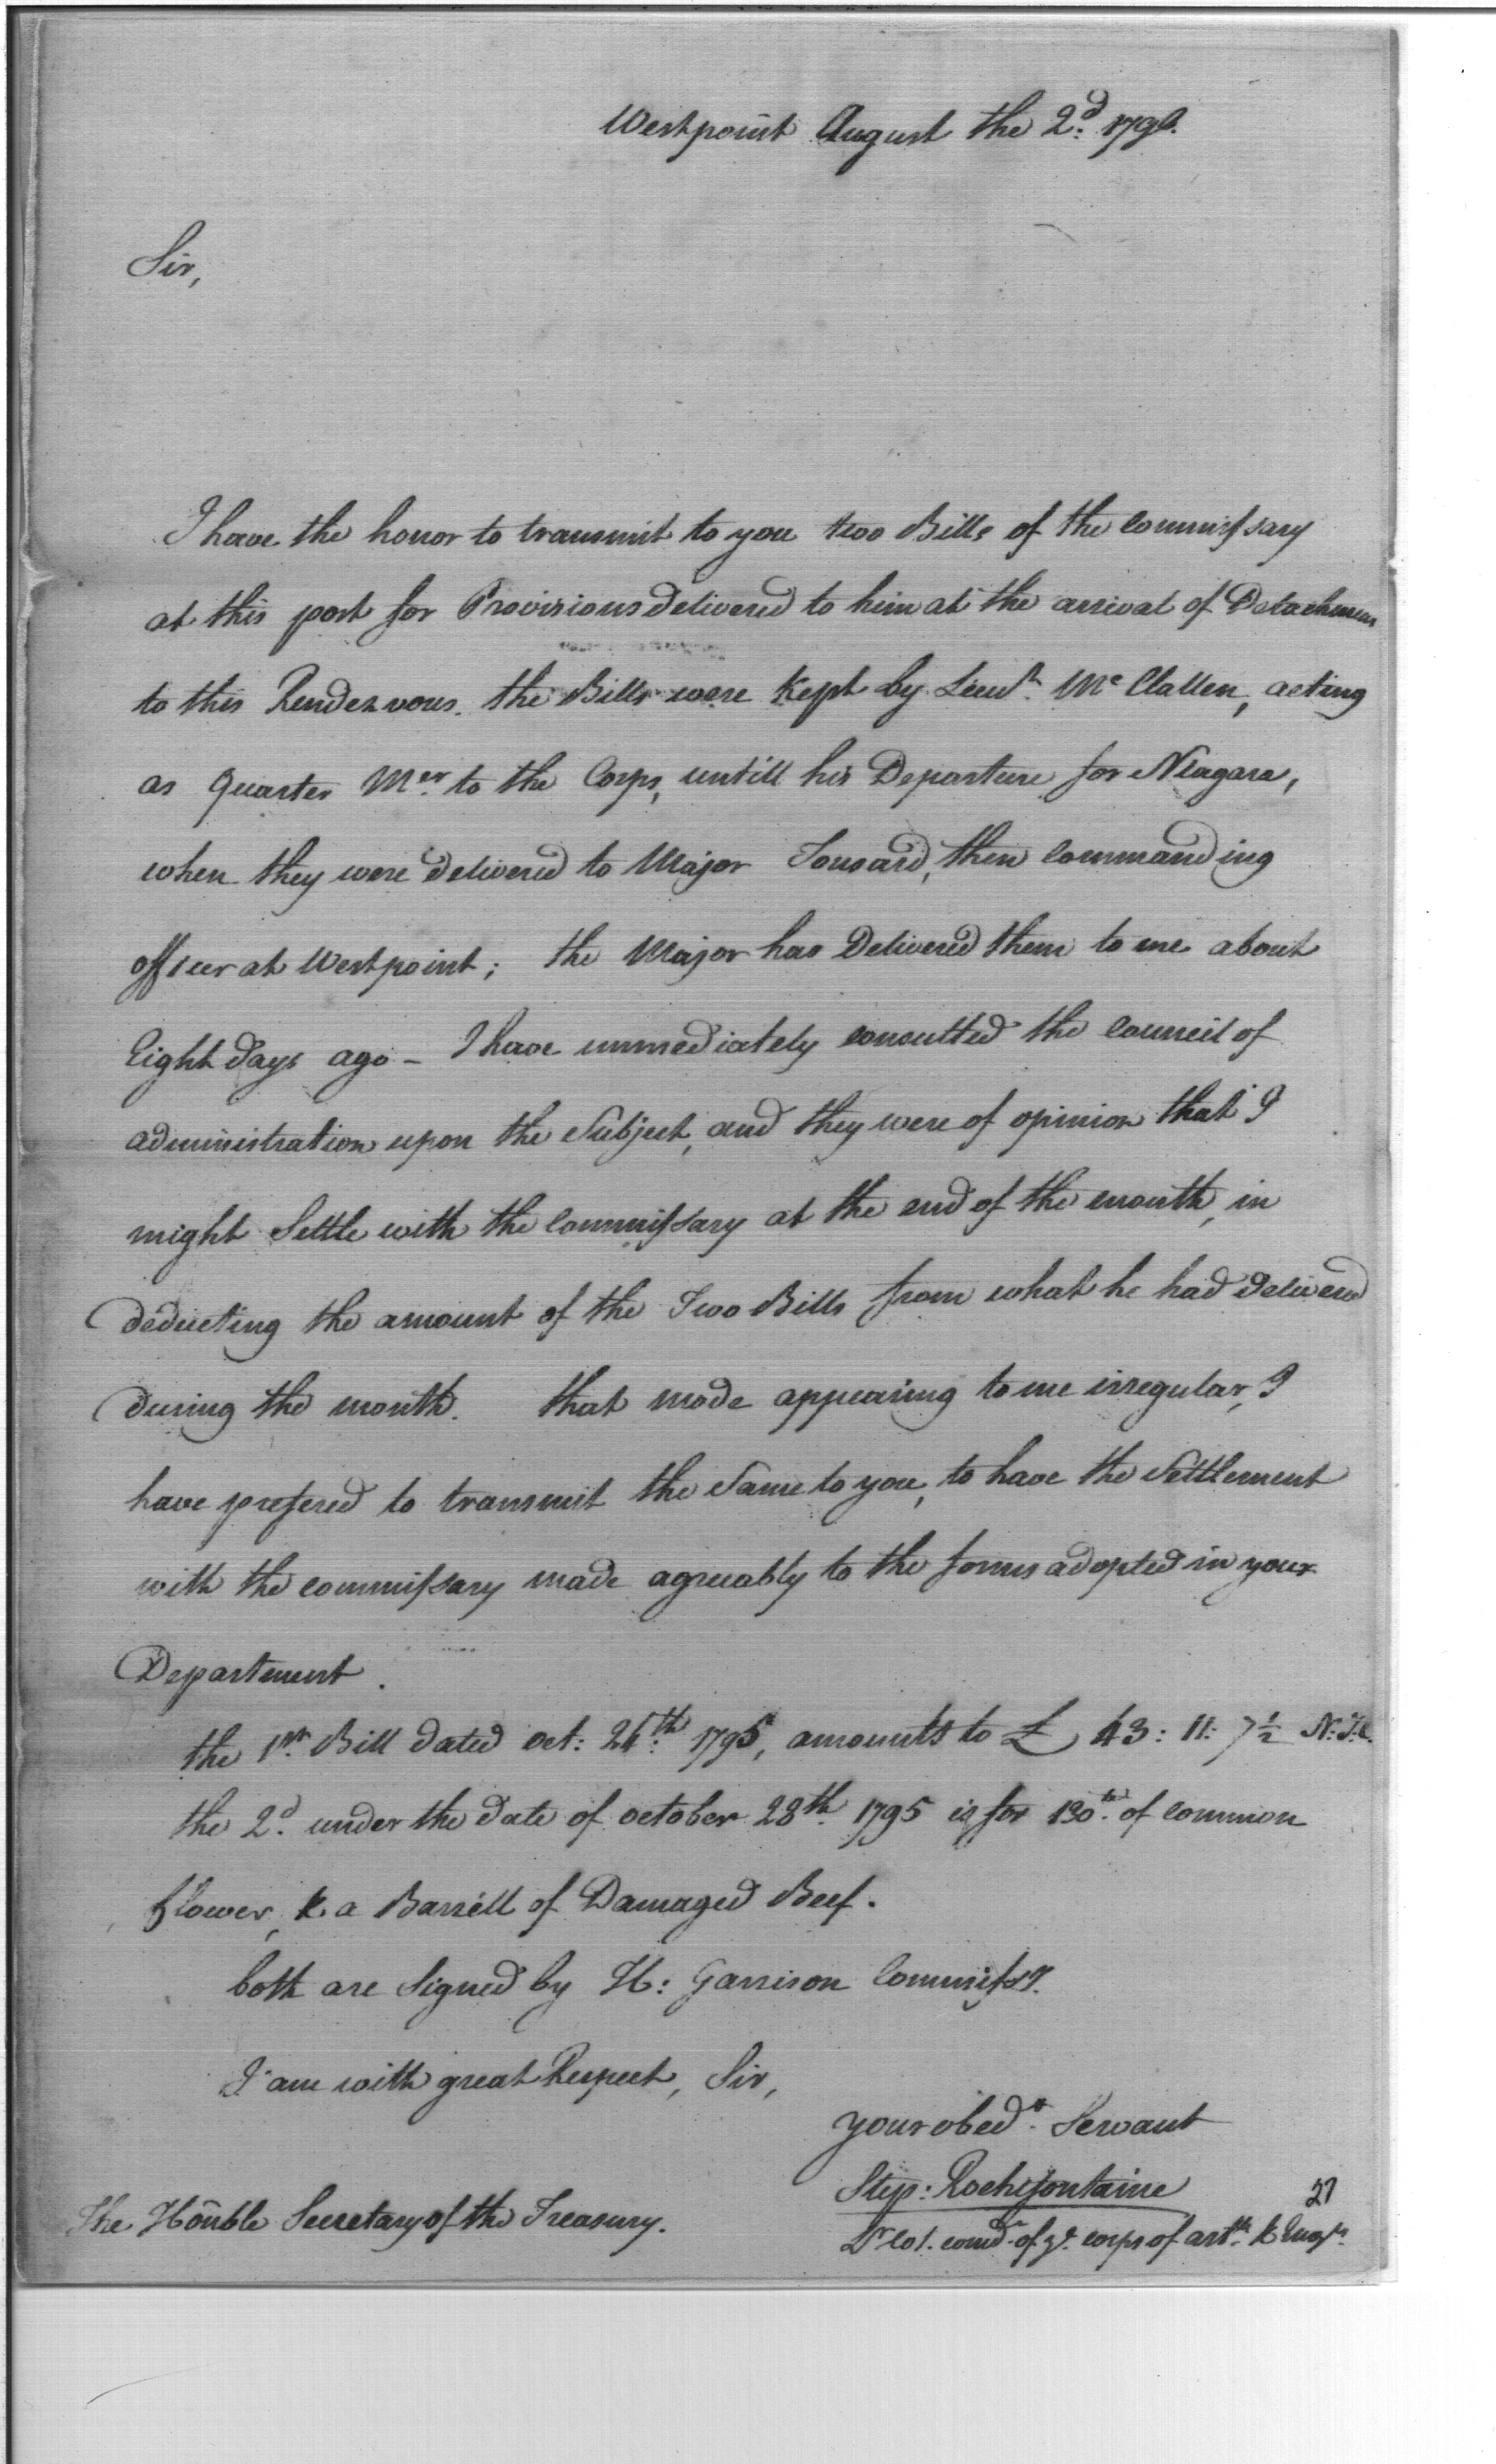 Westpoint August the 2d: 1796.
Sir,
I have the honor to transmit to you two Bills of the Commissary
at this post for Provisions Delivered to him at the arrival of Detachmens
to this Rendezvous. the Bills were Kept by Lieut. Mc Clallen, acting
as Quarter Mer. to the Corps, untill his Departure for Niagara,
when they were delivered to Major Tousard, then Commanding
officer at Westpoint; the Major has Delivered them to me about
Eight days ago - I have immediately consulted the Council of
administration upon the Subject, and they were of opinion that I
might Settle with the Commissary at the end of the month, in
deducting the amount of the Two Bills from what he had Delivered
during the month. that mode appearing to me irregular, I
have prefered to transmit the Same to you, to have the Settlement
with the commissary made agreeably to the forms adopted in your
Department.
the 1st. Bill dated Oct: 26th. 1795, amounts to £ 43: 11: 7½
the 2d. under the date of October 28th. 1795 is for 130 of Common
flower, & a Barrell of Damaged Beef.
both are Signed by H: Garrison Commissy.
I am with great Respect, Sir,
your obedt. Servant
Step: Rochefontaine
27
The Honble Secretary of the Treasury.
Lt Col. comdt. of ye. corps of arty. & Engrs.